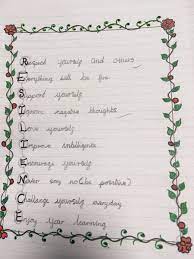 Respect yourself and others
Everything will be fine
Support yourself
Ignore negative thoughts
Love yourself
Improve intelligence
Encourage yourself
Never say no (be positive)
Challenge yourself everyday
Enjoy Your learning